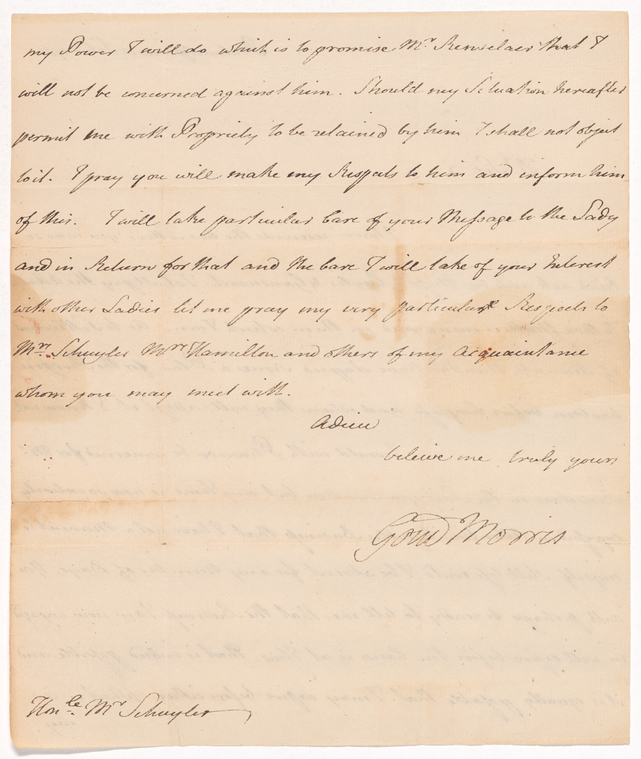 my Power I will do which is to promise Mr Renselaer that I
will not be concerned against him. Should my Situation hereafter
permit me with Propriety to be retained by him I shall not object
to it. I pray you will make my Respects to him and inform him
of this. I will take particular Care of your Message to the Lady
and in Return for that and the Care I will take of your Interest
with other Ladies let me pray my very particular Respects to
Mrs Schuyler Mrs Hamilton and others of my Acquaintance
whom you may meet with.
Adieu
beleive me truly yours
Gouv Morris
Honle Mr Schuyler